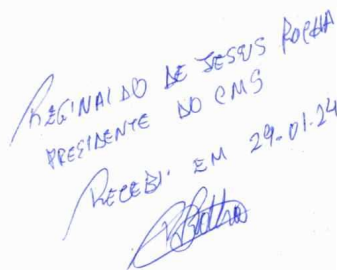 REGINALDO DE JESUS ROCHA
PRESIDENTE DO CMS
RECEBI. EM 29-01-24